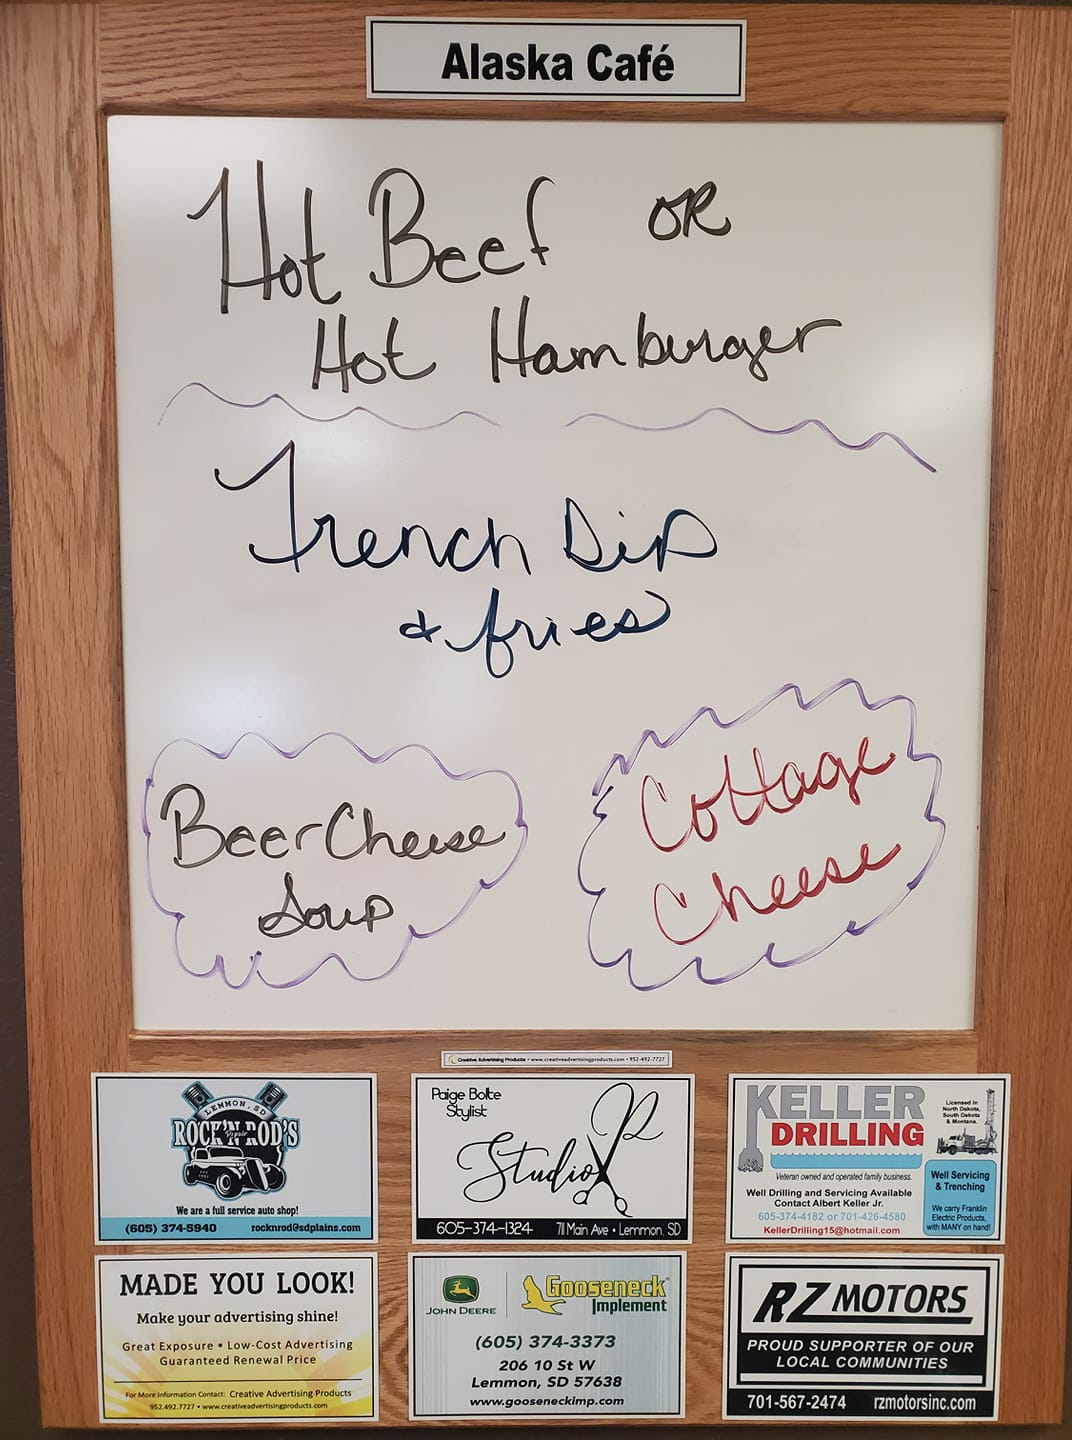 Alaska Café
Hot Beef OR
Hot Hamburger
French Dip
& fries
Beer Cheese
Soup
Cottage
Cheese
Creative Advertising Products • www.creativeadvertisingproducts.com • 952-492-7727
LEMMON, SD
ROCK'N ROD'S
Repair
We are a full service auto shop!
(605) 374-5940 rocknrod@sdplains.com
Paige Bolte
Stylist
Studio R
605-374-1324 711 Main Ave • Lemmon, SD
KELLER
DRILLING
Licensed in
North Dakota,
South Dakota
& Montana.
Veteran owned and operated family business.
Well Drilling and Servicing Available
Contact Albert Keller Jr.
605-374-4182 or 701-426-4580
KellerDrilling15@hotmail.com
Well Servicing
& Trenching
We carry Franklin
Electric Products,
with MANY on hand!
MADE YOU LOOK!
Make your advertising shine!
Great Exposure • Low-Cost Advertising
Guaranteed Renewal Price
For More Information Contact: Creative Advertising Products
952.492.7727 • www.creativeadvertisingproducts.com
JOHN DEERE
Gooseneck
Implement
(605) 374-3373
206 10 St W
Lemmon, SD 57638
www.gooseneckimp.com
RZ MOTORS
PROUD SUPPORTER OF OUR
LOCAL COMMUNITIES
701-567-2474 rzmotorsinc.com